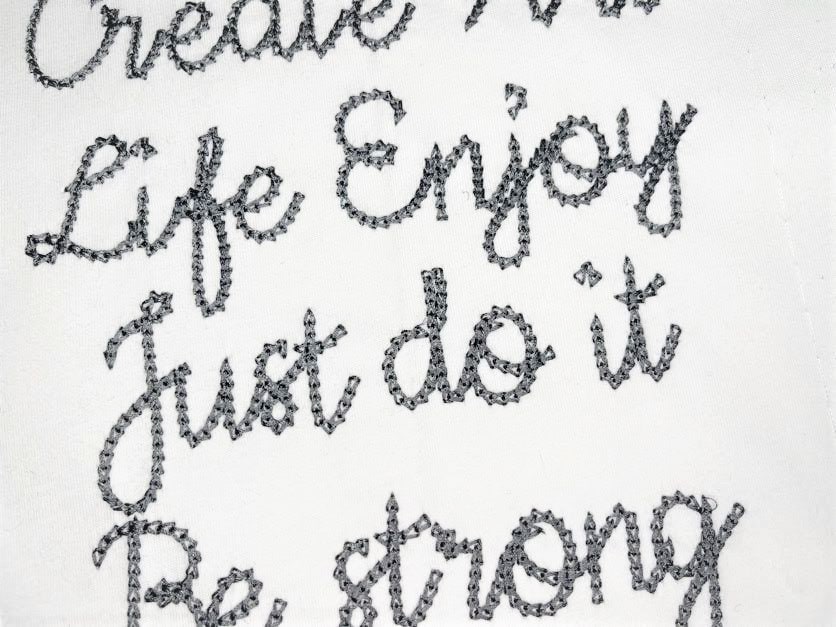 Create
Life Enjoy
Just do it
Be strong